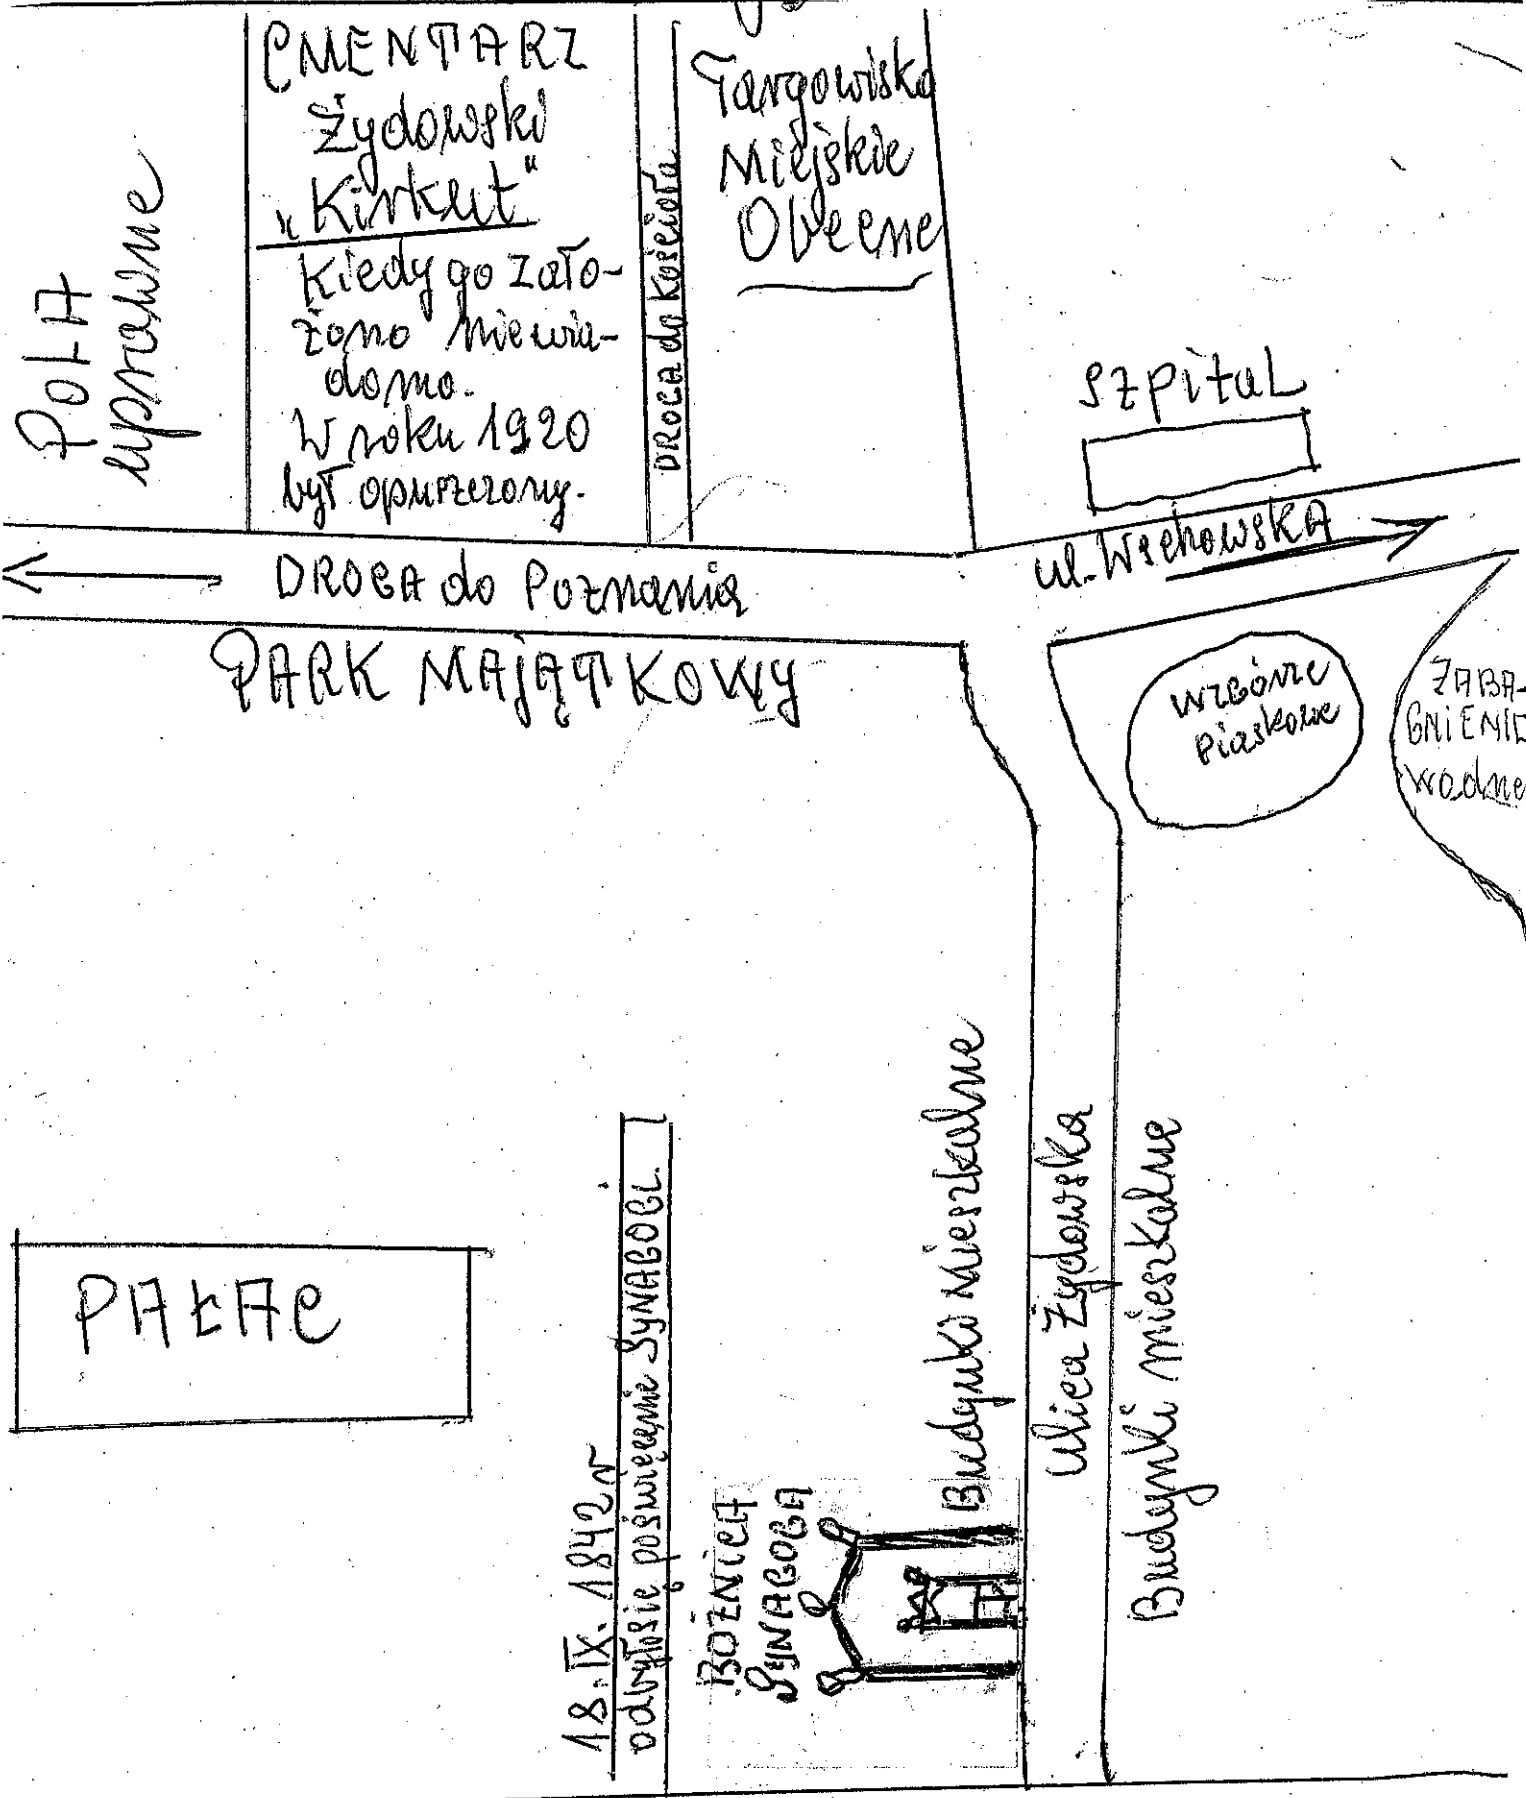 POLA
uprawne
CMENTARZ
Żydowski
„Kirkut”
Kiedy go zało-
żono niewia-
domo.
W roku 1920
był opuszczony.
DROGA do Kościoła
Targowisko
Miejskie
Obecne
SZPITAL
ul. Wschowska
DROGA do Poznania
PARK MAJĄTKOWY
WZGÓRZE
Piaskowe
ZABA-
GNIENIE
wodne
PAŁAC
18. IX. 1842 r
odbyło się poświęcenie SYNAGOGI.
BOŻNICA
SYNAGOGA
Budynki mieszkalne
Ulica Żydowska
Budynki mieszkalne